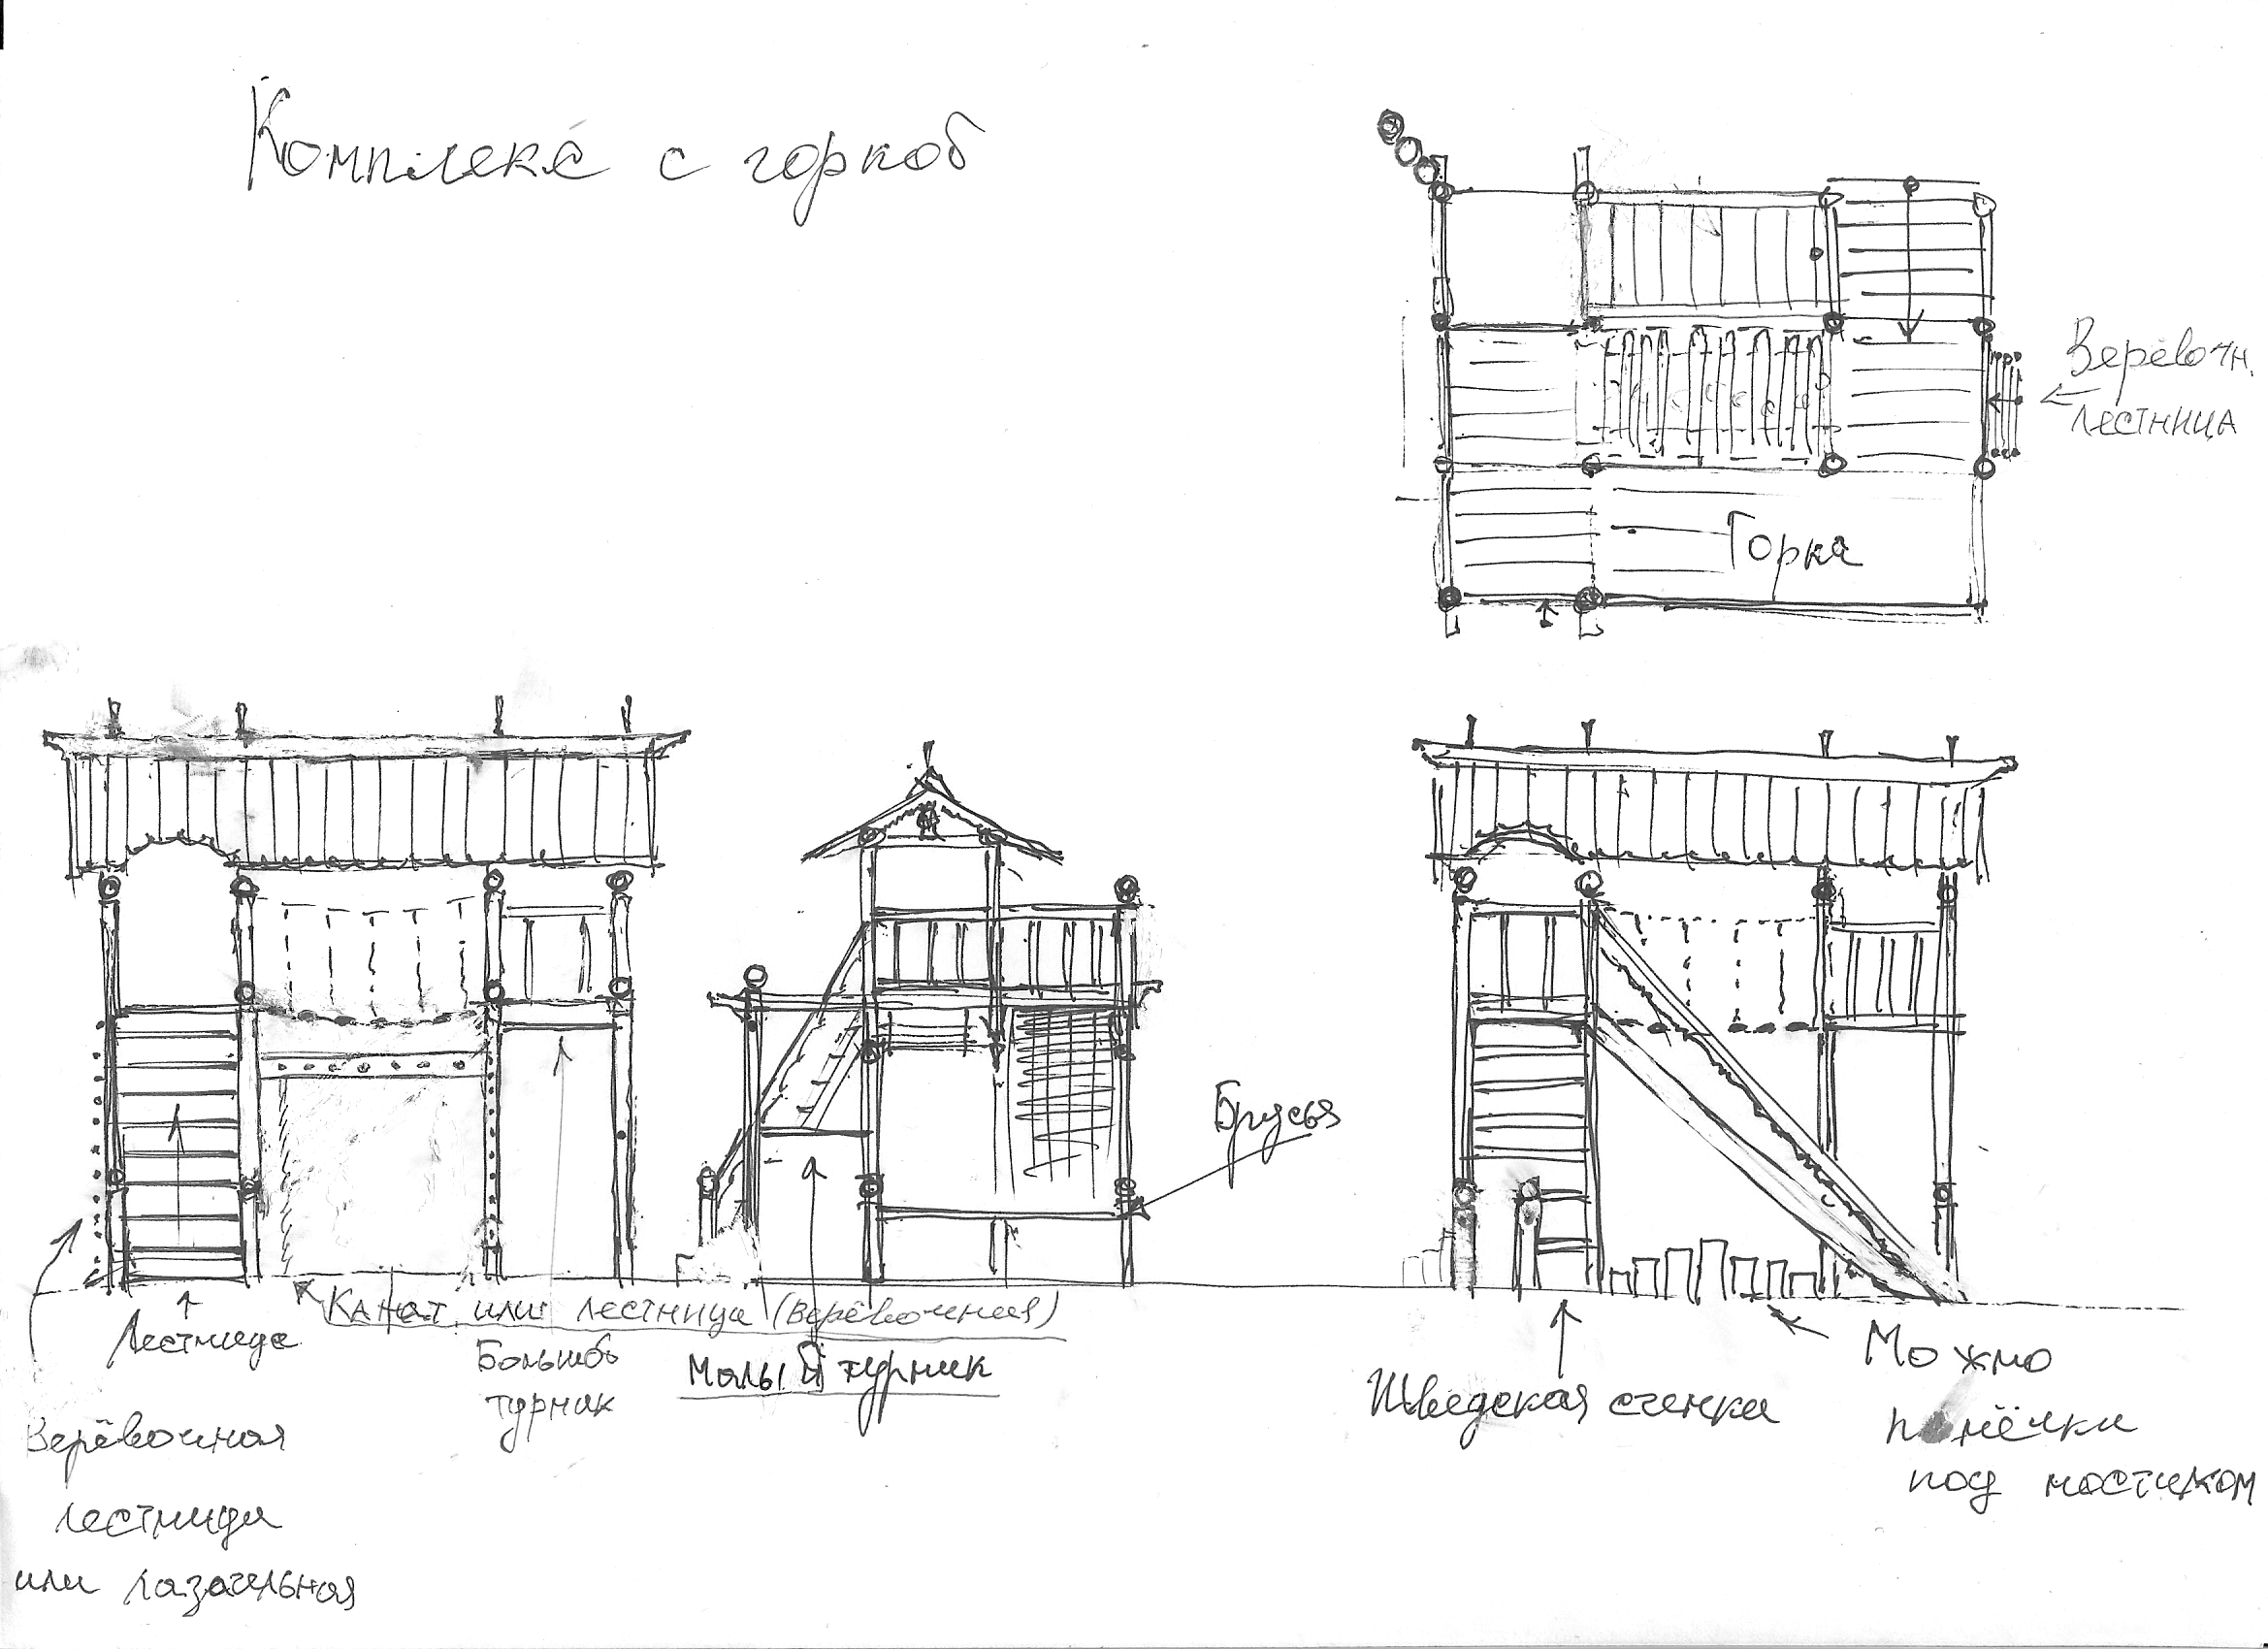 Комплекс с горкой
Верёвочн.
лестница
Горка
Брусья
Канат или лестница (верёвочная)
Лестница
Большой
турник
Малый турник
Верёвочная
лестница
или лазательная
Шведская стенка
Можно
пенёчки
под мостиком